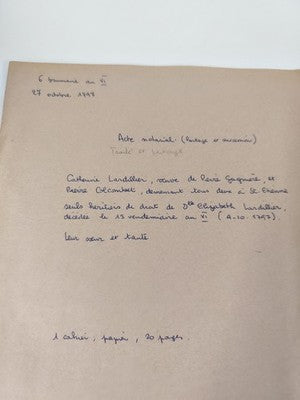 6 brumaire an VI
27 octobre 1797
Acte notarial (Partage et succession)
Traité et
Catherine Lardillier, veuve de Pierre Gagnière, et
Pierre Colcombet, demeurant tous deux à St Etienne
seuls héritiers de droit de Dlle Elizabeth Lardillier,
décédée le 13 vendémiaire an VI (4-10-1797)
Leur sœur et tante
1 cahier, papier, 20 pages.